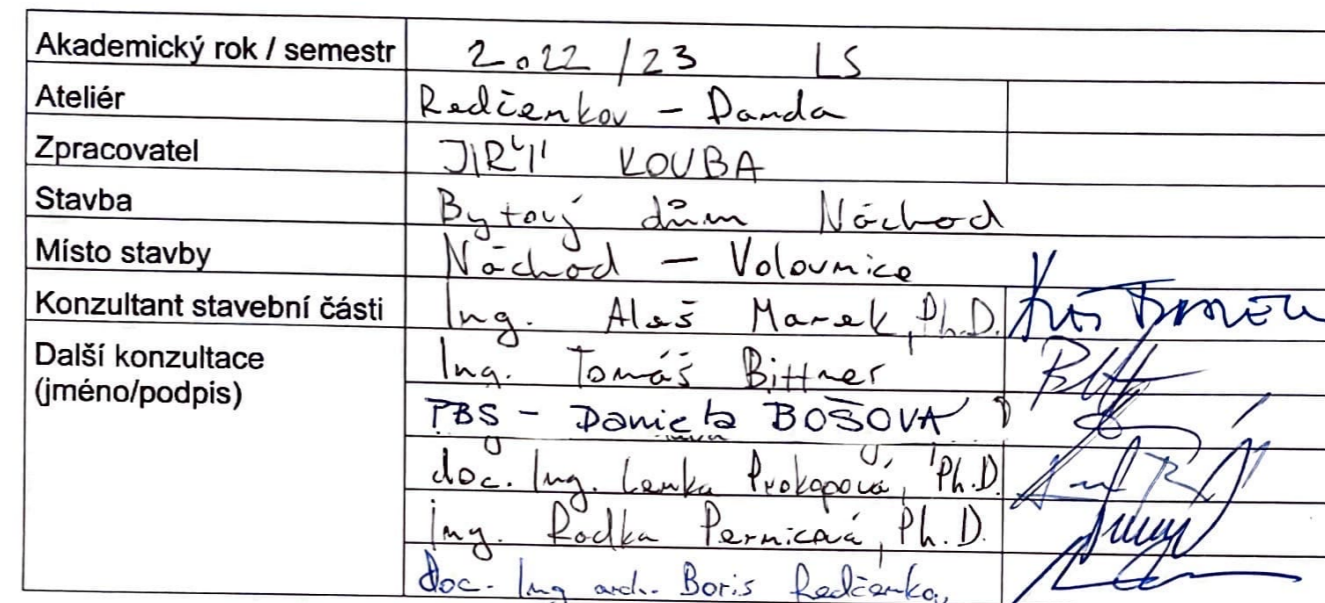 Akademický rok / semestr 2022/23 LS
Ateliér Redčenkov - Danda
Zpracovatel JIŘÍ KOUBA
Stavba Bytový dům Náchod
Místo stavby Náchod - Volovnice
Konzultant stavební části Ing. Aleš Marek, Ph.D.
Další konzultace Ing. Tomáš Bittner
(jméno/podpis)
PBS - Daniela BOŠOVA
doc. Ing. Lenka Prokopová, Ph.D.
Ing. Radka Pernicová, Ph.D.
doc. Ing. arch. Boris Redčenkov,